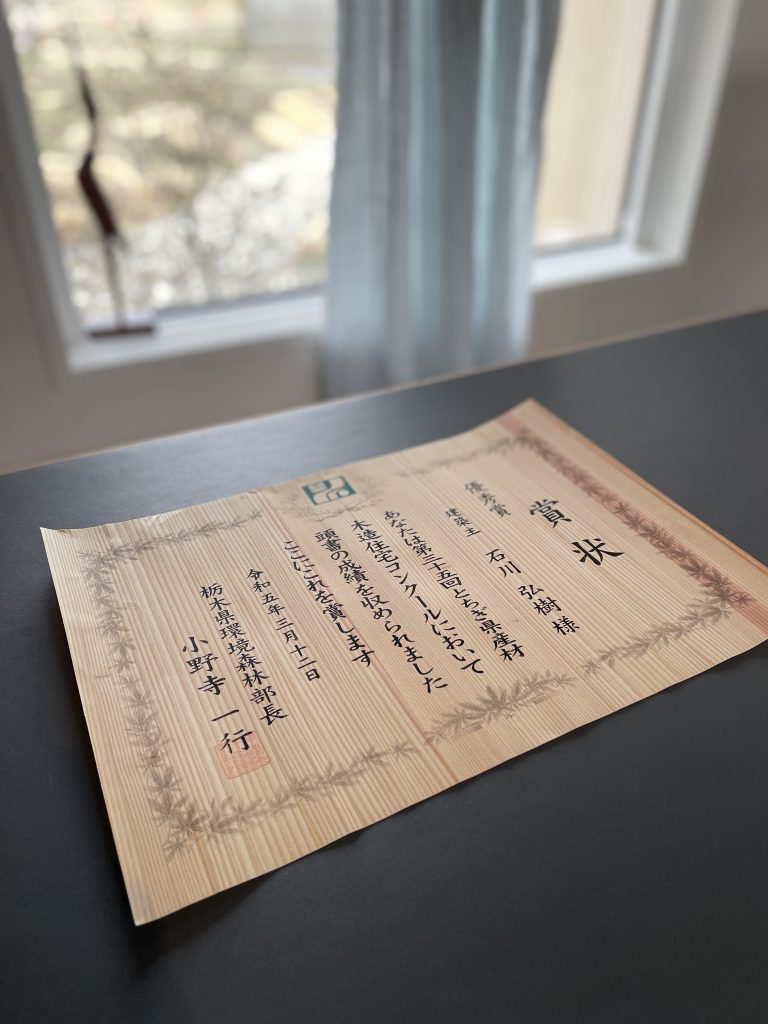 賞状
優秀賞
建築主 石川 弘樹 様
あなたは第三十五回とちぎ県産材
木造住宅コンクールにおいて
頭書の成績を収められました
ここにこれを賞します
令和五年三月十二日
栃木県環境森林部長
小野寺 一行